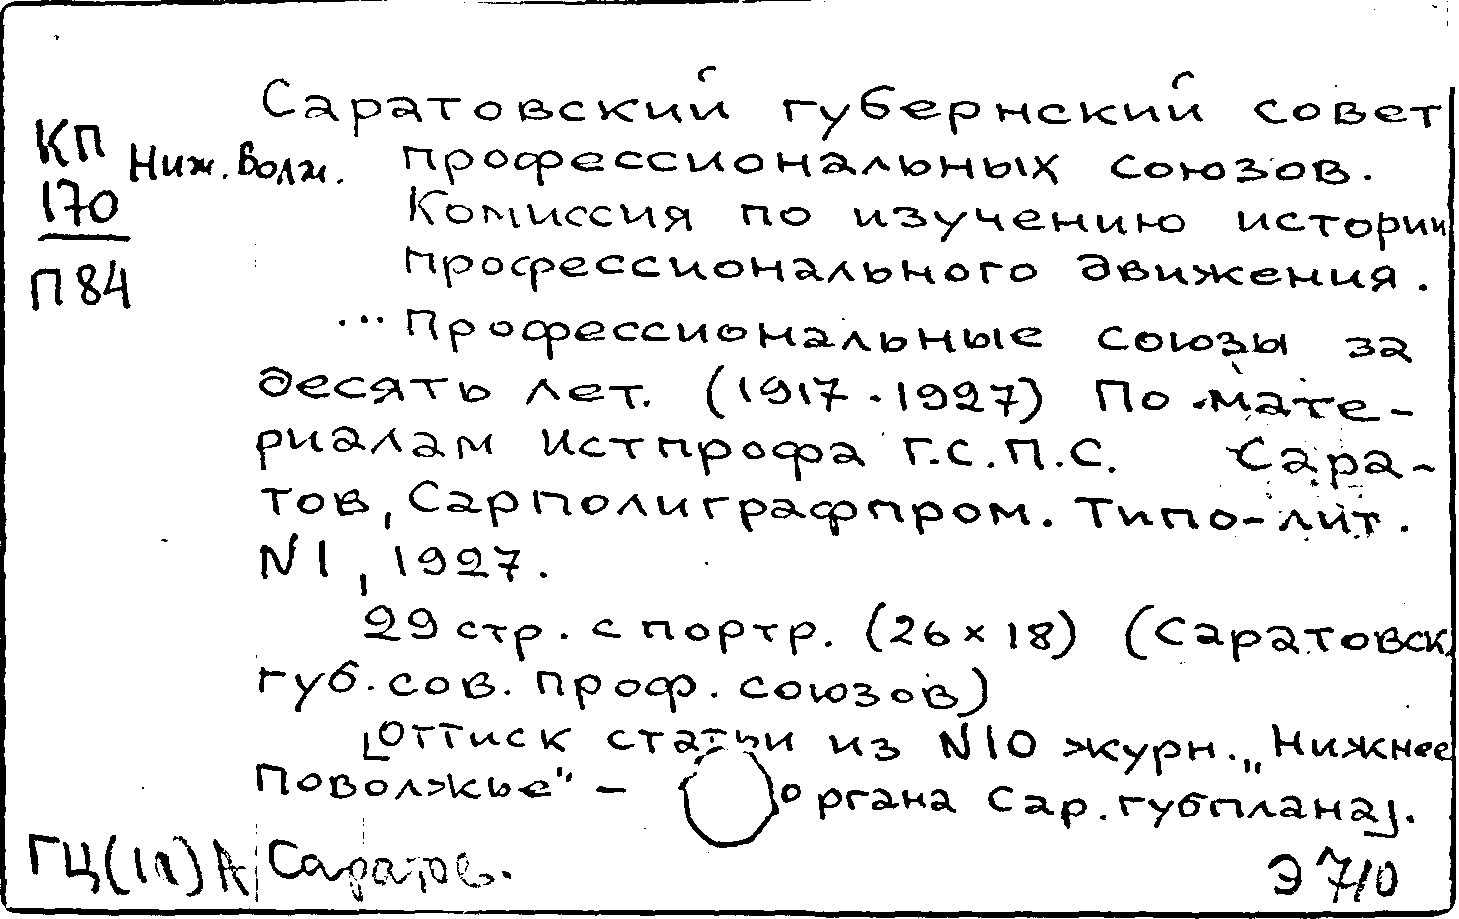 Саратовский губернский совет
КП Ниж. Волж. профессиональных союзов.
170 Комиссия по изучению истории
П 84 профессионального движения.
... Профессиональные союзы за
десять лет. (1917-1927) По мате-
риалам Истпрофа Г.С.П.С. Сара-
тов, Сарполиграфпром. Типо-лит.
N 1, 1927.
29 стр. с портр. (26 x 18) (Саратовск.
губ. сов. проф. союзов)
[Оттиск статьи из N10 журн. „Нижнее
Поволжье" - органа Сар. губплана].
Саратов.
Э 710